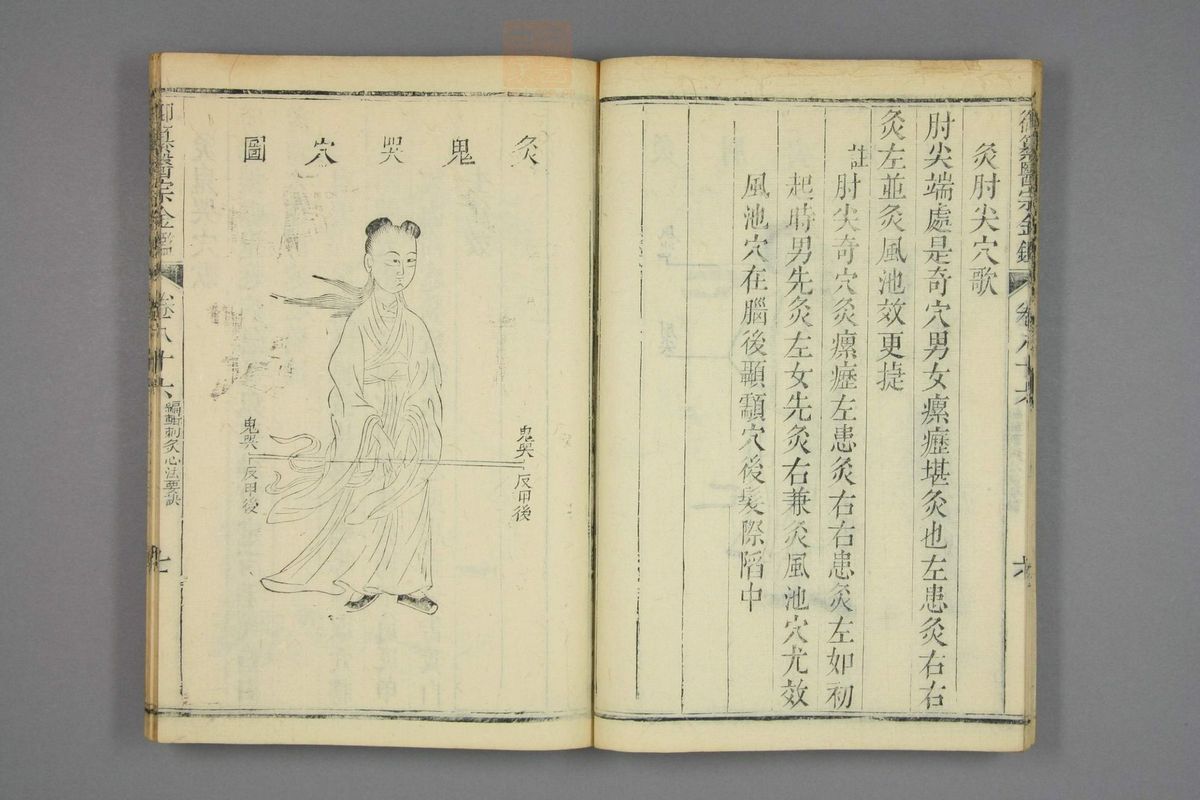 灸肘尖穴歌
肘尖端處是奇穴男女瘰癧堪灸也左患灸右右
灸左並灸風池效更捷
註肘尖奇穴灸瘰癧左患灸右右患灸左如初
起時男先灸左女先灸右兼灸風池穴尤效
風池穴在腦後顳顬穴後髮際陷中
卷八十六
六
灸鬼哭穴圖
鬼哭
反甲後
鬼哭
反甲後
醫宗金鑑
卷八十六
編輯刺灸心法要訣
七